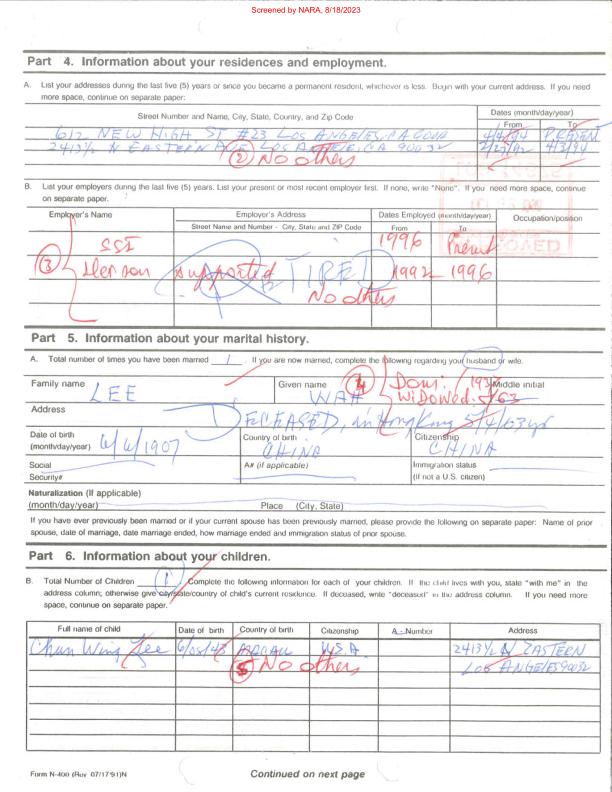 Screened by NARA, 8/18/2023
Part 4. Information about your residences and employment.
A. List your addresses during the last five (5) years or since you became a permanent resident, whichever is less. Begin with your current address. If you need
more space, continue on separate paper:
Street Number and Name, City, State, Country, and Zip Code
Dates (month/day/year)
From To
612 NEW HIGH ST #23 LOS ANGELES, CA 4/4/94
2413½ N EASTERN AVE LOS ANGELES, CA 90032 4/3/94
② No others
B. List your employers during the last five (5) years. List your present or most recent employer first. If none, write "None". If you need more space, continue
on separate paper:
Employer's Name Employer's Address Dates Employed (month/day/year) Occupation/position
Street Name and Number - City, State and ZIP Code From To
SSI 1996 Present
③ Her son supported 1992 - 1996
RETIRED
No others
Part 5. Information about your marital history.
A. Total number of times you have been married 1 . If you are now married, complete the following regarding your husband or wife.
Family name LEE Given name WAH Middle initial
④ Dom. 1937
Widowed 5/63
Address DECEASED, in Hong Kong 5/4/63
Date of birth
(month/day/year) 6/6/1907 Country of birth CHINA Citizenship CHINA
Social
Security# A# (if applicable) Immigration status
(If not a U.S. citizen)
Naturalization (If applicable)
(month/day/year) Place (City, State)
If you have ever previously been married or if your current spouse has been previously married, please provide the following on separate paper: Name of prior
spouse, date of marriage, date marriage ended, how marriage ended and immigration status of prior spouse.
Part 6. Information about your children.
B. Total Number of Children 1 . Complete the following information for each of your children. If the child lives with you, state "with me" in the
address column; otherwise give city/state/country of child's current residence. If deceased, write "deceased" in the address column. If you need more
space, continue on separate paper.
Full name of child Date of birth Country of birth Citizenship A - Number Address
Chun Wing Lee 6/05/43 MACAU U.S.A. 2413½ N EASTERN
⑤ No others LOS ANGELES 90032
Form N-400 (Rev 07/17/91)N Continued on next page